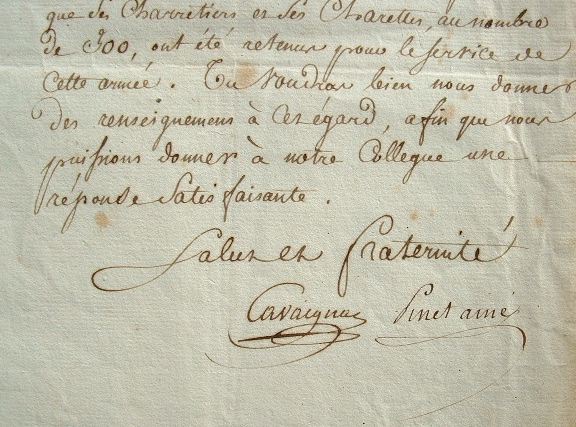 que ses Charretiers et ses Charettes, au nombre
de 300, ont été retenus pour le service de
Cette armée. Tu voudras bien nous donner
Des renseignemens à cet égard, afin que nous
puissions donner à notre Collegue une
réponse Satisfaisante.
Salut et fraternité
Cavaignac Pinet ainé